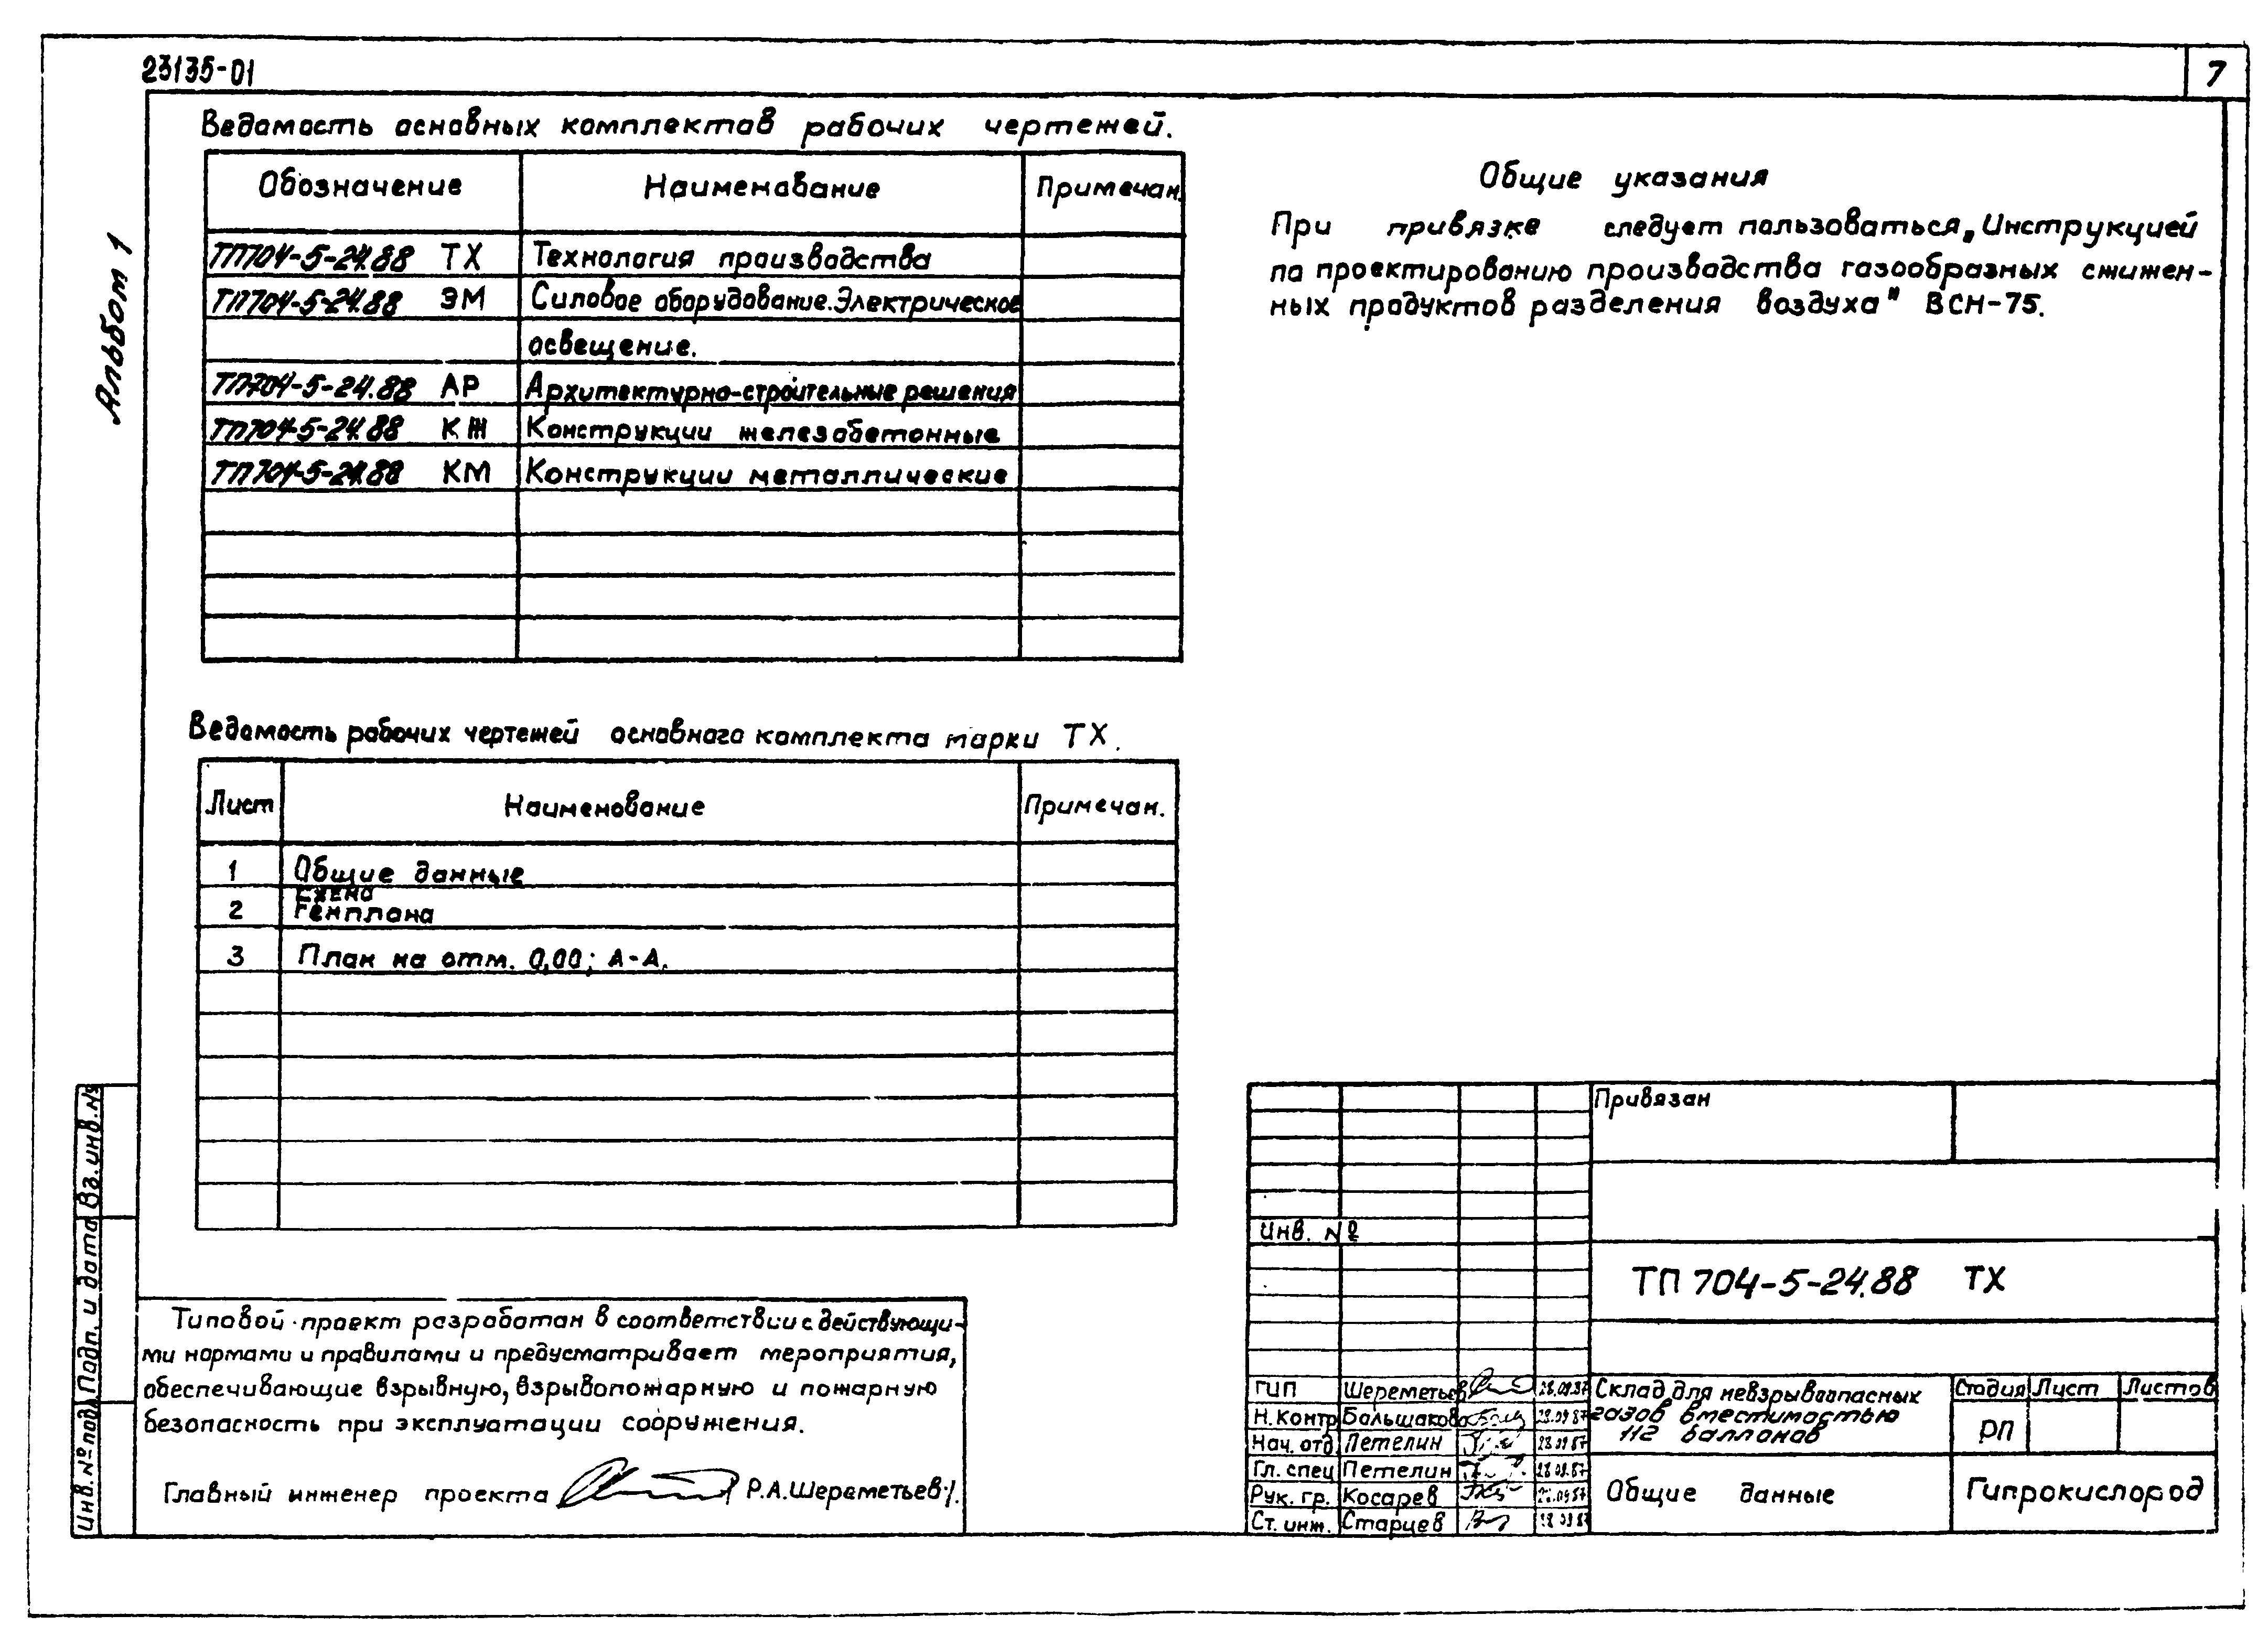 23135-01
7
Альбом 1
Ведомость основных комплектов рабочих чертежей.
Обозначение Наименование Примечан.
ТП704-5-24.88 ТХ Технология производства
ТП704-5-24.88 ЭМ Силовое оборудование. Электрическое
освещение.
ТП704-5-24.88 АР Архитектурно-строительные решения
ТП704-5-24.88 КЖ Конструкции железобетонные
ТП704-5-24.88 КМ Конструкции металлические
Общие указания
При привязке следует пользоваться „Инструкцией
по проектированию производства газообразных сжижен-
ных продуктов разделения воздуха" ВСН-75.
Ведомость рабочих чертежей основного комплекта марки ТХ.
Лист Наименование Примечан.
1 Общие данные
Схема
2 Генплана
3 План на отм. 0,00; А-А.
Типовой проект разработан в соответствии с действующи-
ми нормами и правилами и предусматривает мероприятия,
обеспечивающие взрывную, взрывопожарную и пожарную
безопасность при эксплуатации сооружения.
Главный инженер проекта Р.А.Шереметьев/.
Взр.инв.№
Подп. и дата
Инв.№ подл.
Привязан
Инв. №
ТП 704-5-24.88 ТХ
ГИП Шереметьев 28.09.87
Н.контр Большакова 28.09.87
Нач. отд. Петелин 28.09.87
Гл. спец Петелин 28.09.87
Рук. гр. Косарев 28.09.87
Ст. инж. Старцев 28.09.87
Склад для невзрывоопасных
газов вместимостью
112 баллонов
Стадия Лист Листов
РП
Общие данные
Гипрокислород